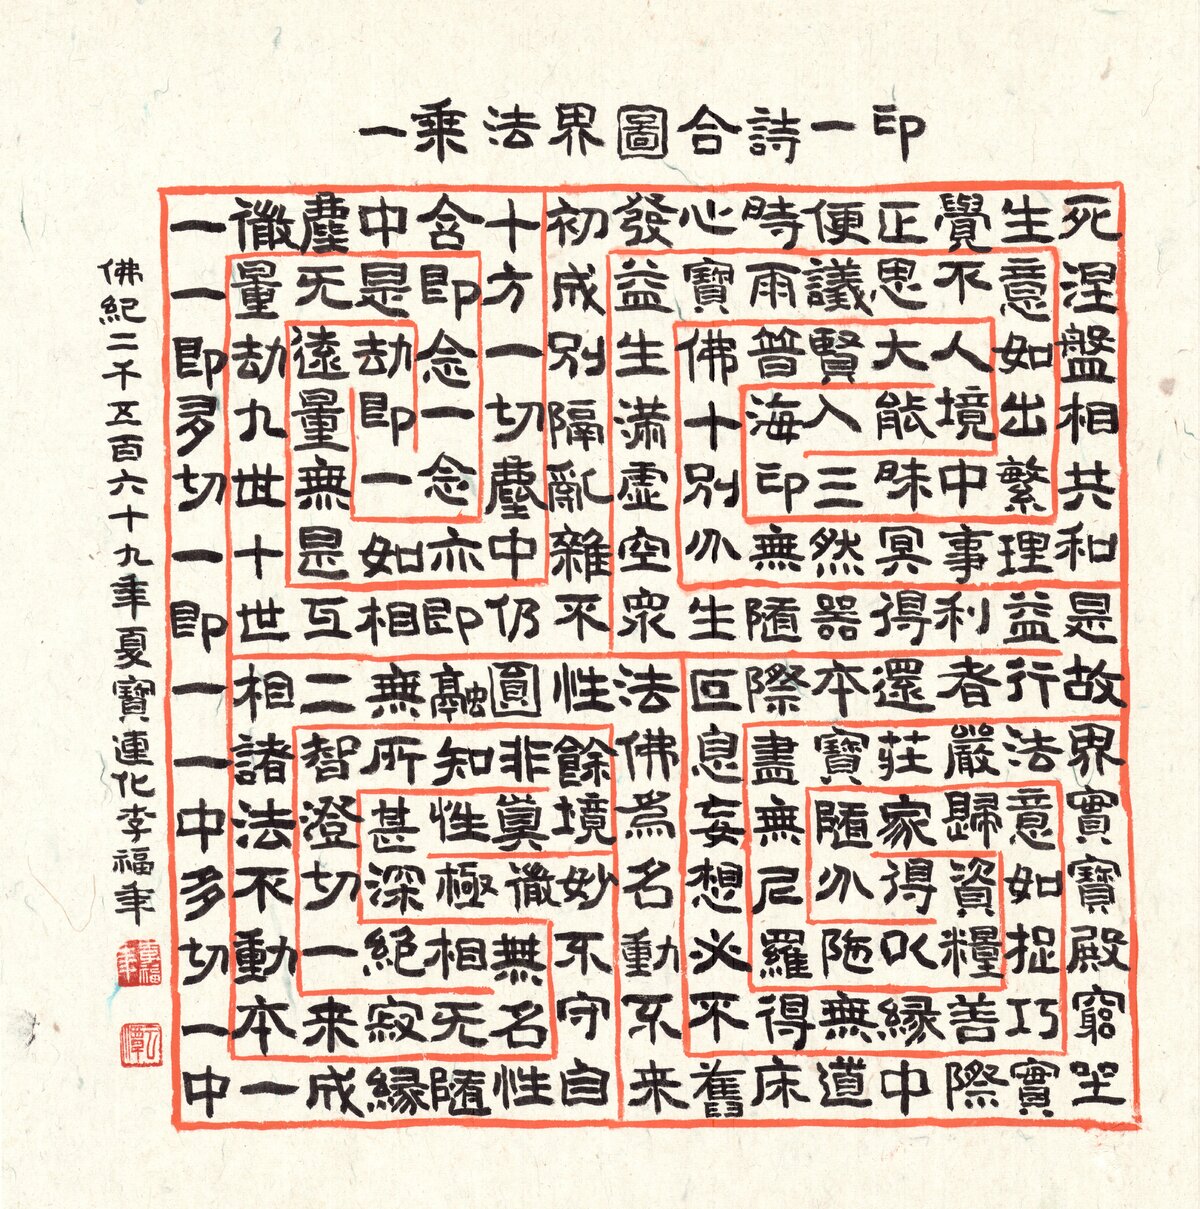 一乘法界圖合詩一印
一微塵中含十初發心時便正覺生死
一量无是即方成益寶雨議思不意涅
即劫遠劫念一別生佛普賢大人如盤
多九量即一切隔滿十海入能境出相
切世無一念塵亂虛別印三昧中繁共
一十是如亦中雜空分無然冥事理和
即世互相即仍不眾生隨器得利益是
一相二無融圓性法叵際本還者行故
一諸智所知非餘佛息盡寶莊嚴法界
中法澄甚性真境為妄無隨家歸意實
多不切深極微妙名想尼分得資如寶
切動一絕相無不動必羅陀以糧捉殿
一本来寂无名守不不得無緣善巧窮
中一成緣隨性自来舊床道中際實坐
佛紀二千五百六十九年夏寶連化李福年